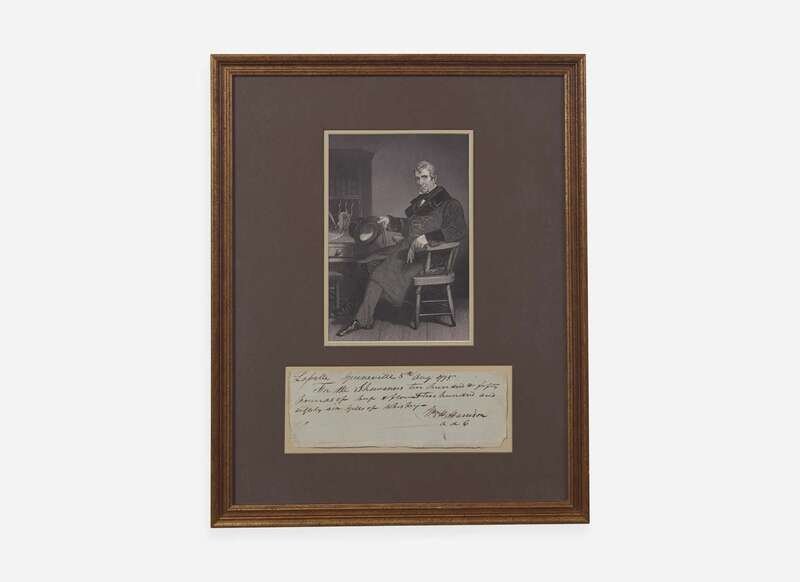 Greenville 5th Aug 1795
For the Shawanoes two hundred & fifty
pounds of beef & flour & two hundred and
eighty six gills of Whiskey
Wm H. Harrison
A d C